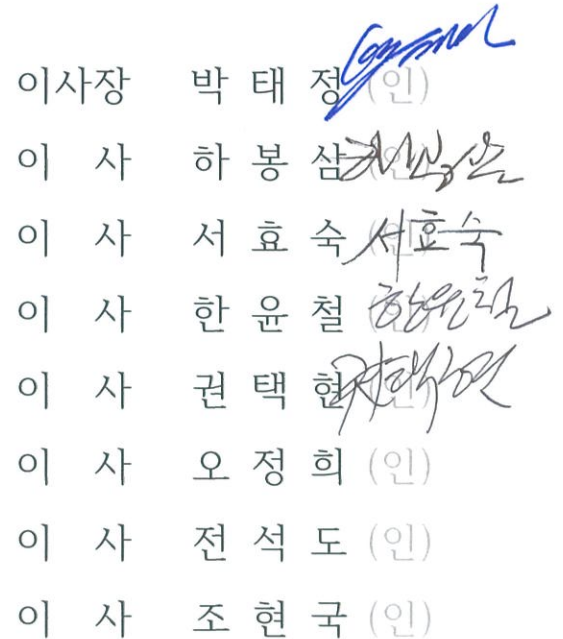 이사장 박 태 정 (인)
이 사 하 봉 삼 (인)
이 사 서 효 숙 (인) 서효숙
이 사 한 윤 철 (인) 한윤철
이 사 권 택 현 (인)
이 사 오 정 희 (인)
이 사 전 석 도 (인)
이 사 조 현 국 (인)